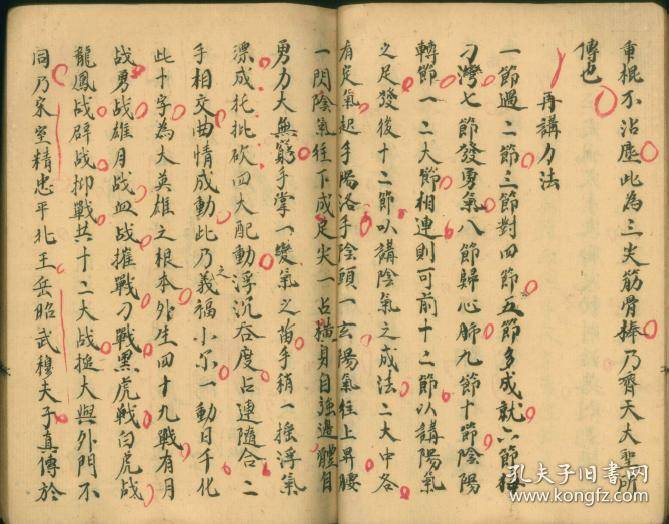 重棍不沾塵此為三尖筋骨棒乃齊天大聖所
傳也
再講力法
一節過二節三節對四節五節多成就六節
刁灣七節發勇氣八節歸心肺九節十節陰陽
轉節一二大節相連則可前十二節以講陽氣
之足發後十二節以講陰氣之成法二大中各
有定氣起手陽洛手陰頭一玄陽氣往上昇腰
一門陰氣往下成足尖一占橫身自強過體自
勇力大無窮手掌一變氣之苗手稍一搖浮氣
漂成托批砍四大配動浮沉吞度占連隨合二
手相交曲情成動此乃義之福小尓一動日千化
此十字為大英雄之根本外生四十九戰有月
战勇战雄月战血战摧戰刁戰黑虎戰白虎战
龍鳳战辟战抑戰共十二大战挺大與外門不
同乃宋室精忠平北王岳昭武穆夫子真傳於
孔夫子旧书网
www.kongfz.com